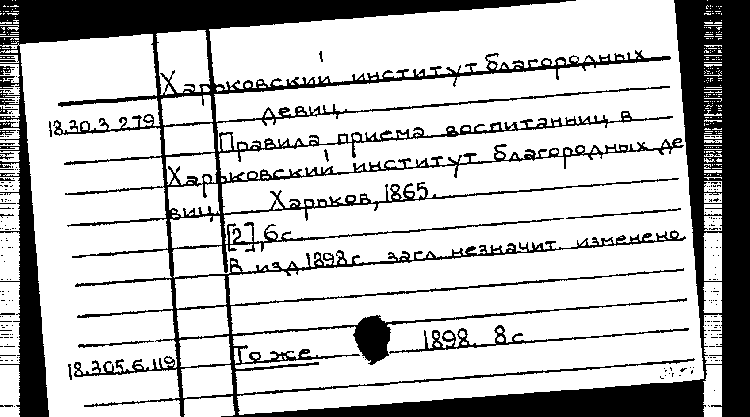 Харьковский институт благородных
18.30.3.279 девиц.
Правила приема воспитанниц в
Харьковский институт благородных де
виц. Харьков, 1865.
[2], 6 с.
В изд. 1898 г. загл. незначит. изменено.
18.305.6.119 То же. 1898. 8 с.